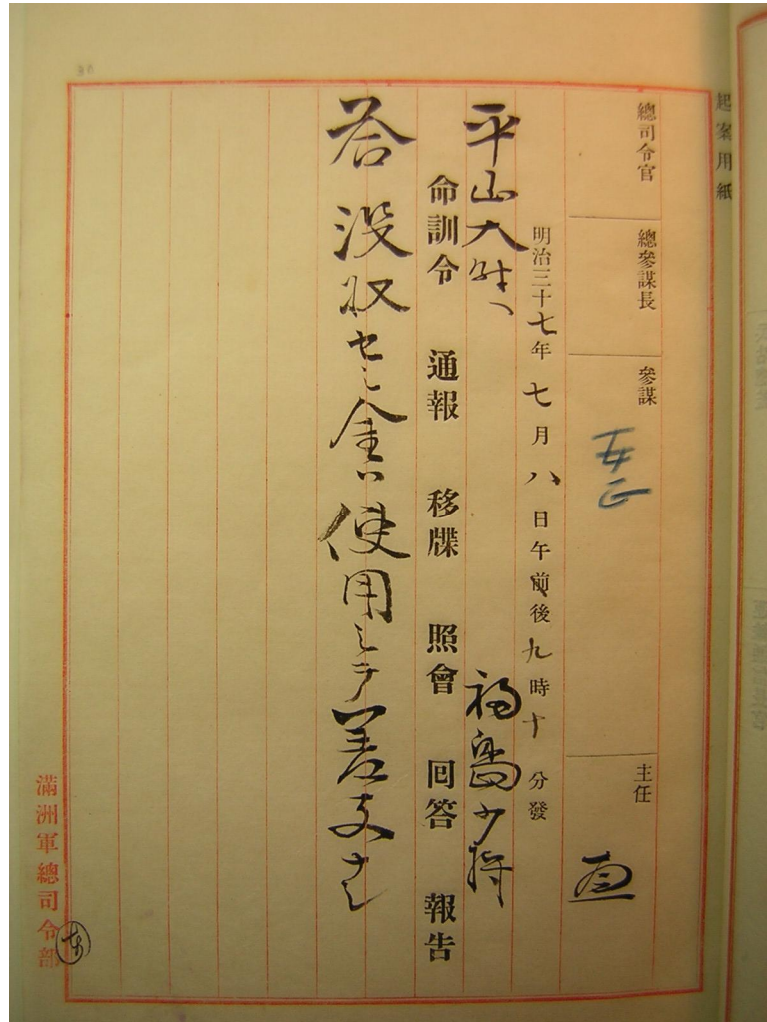 起案用紙
總司令官 總參謀長 參謀 主任
明治三十七年七月八日午前後九時十分發
平山大尉へ 福島少將
命訓令 通報 移牒 照會 回答 報告
答 没収セシ金ハ使用シテ差支ナシ
滿洲軍總司令部